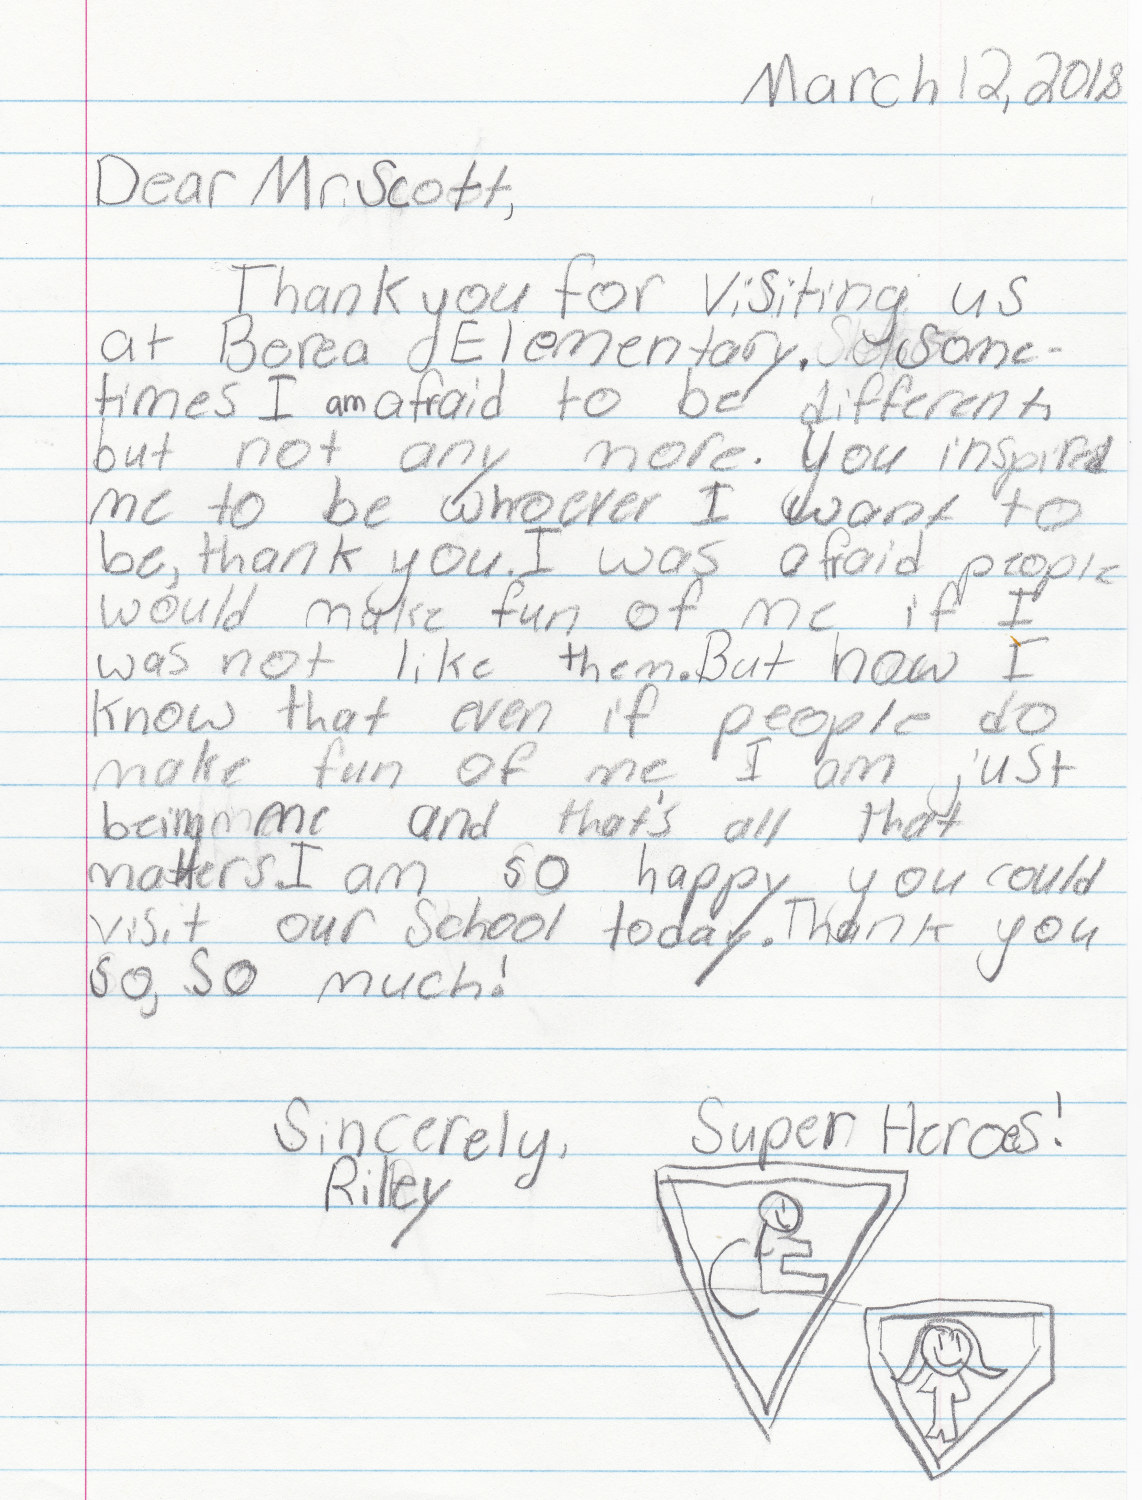 March 12, 2018
Dear Mr. Scott,
Thank you for visiting us
at Berea Elementary. Some-
times I am afraid to be different,
but not any more. You inspired
me to be whoever I want to
be, thank you. I was afraid people
would make fun of me if I
was not like them. But now I
know that even if people do
make fun of me, I am just
being me and that's all that
matters. I am so happy you could
visit our School today. Thank you
so, so much!
Sincerely, Super Heroes!
Riley